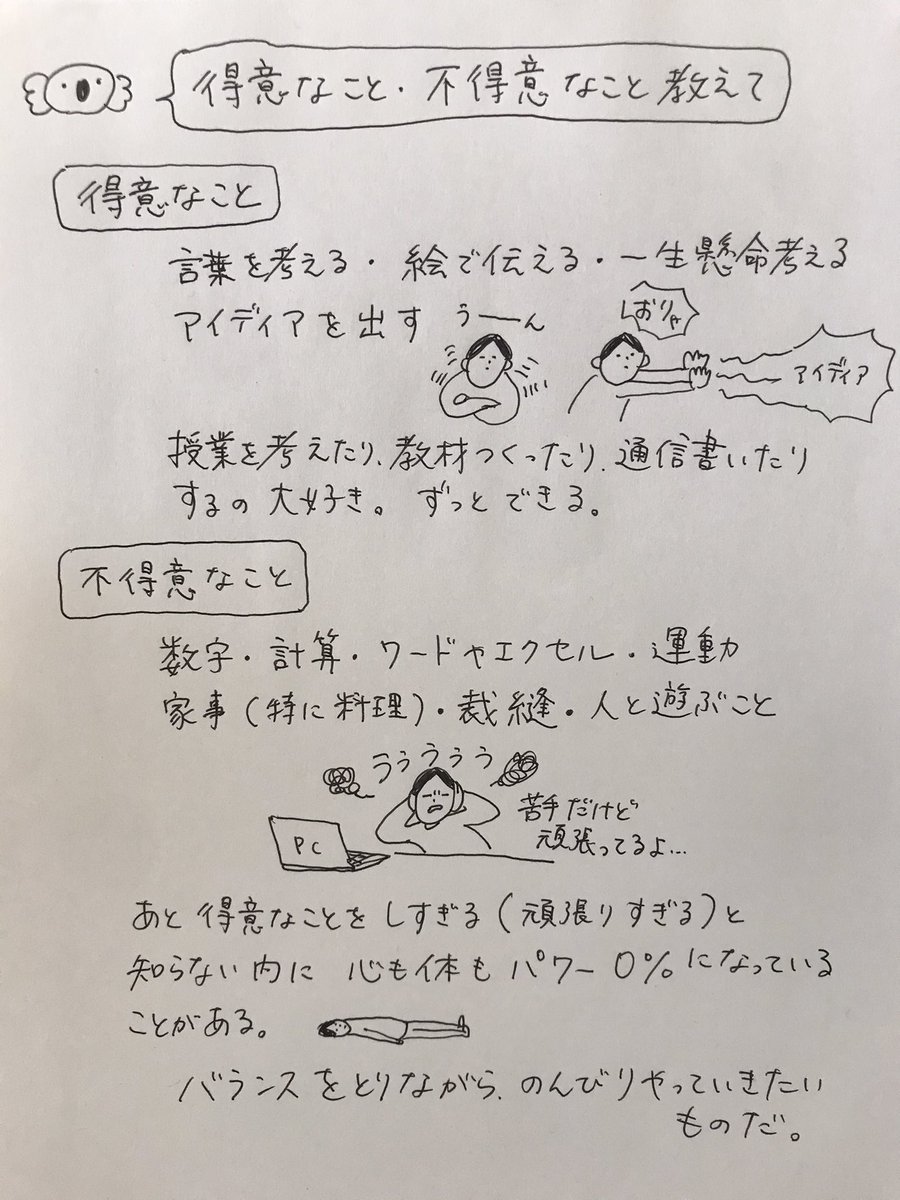 得意なこと・不得意なこと教えて
得意なこと
言葉を考える・絵で伝える・一生懸命考える
アイディアを出す
うーん
しおりゃ
アイディア
授業を考えたり、教材つくったり、通信書いたり
するの大好き。ずっとできる。
不得意なこと
数字・計算・ワードやエクセル・運動
家事(特に料理)・裁縫・人と遊ぶこと
うぅうぅぅ
PC
苦手だけど
頑張ってるよ…
あと得意なことをしすぎる(頑張りすぎる)と
知らない内に 心も体もパワー0%になっている
ことがある。
バランスをとりながら、のんびりやっていきたい
ものだ。